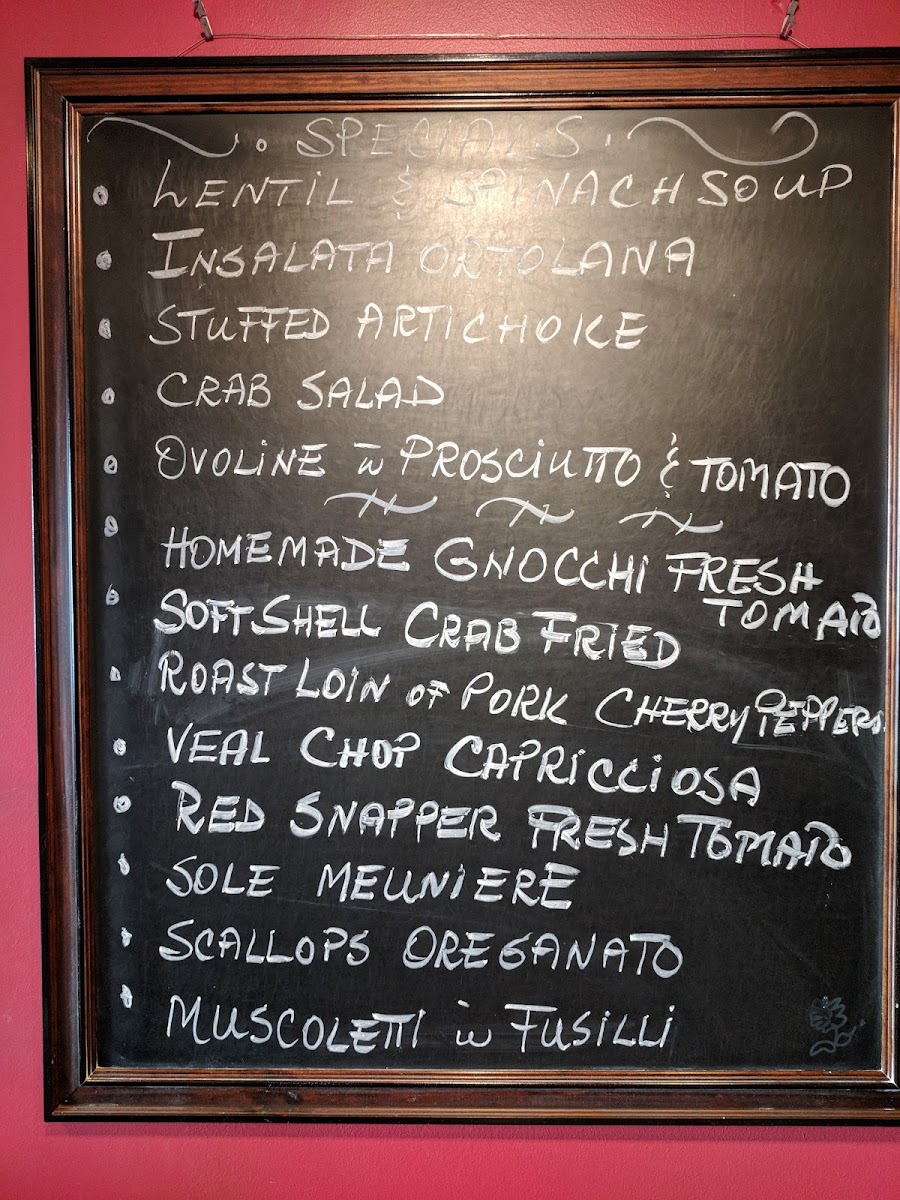 SPECIALS
LENTIL & SPINACH SOUP
INSALATA ORTOLANA
STUFFED ARTICHOKE
CRAB SALAD
OVOLINE w PROSCIUTTO & TOMATO
HOMEMADE GNOCCHI FRESH
TOMATO
SOFTSHELL CRAB FRIED
ROAST LOIN OF PORK CHERRY PEPPERS
VEAL CHOP CAPRICCIOSA
RED SNAPPER FRESH TOMATO
SOLE MEUNIERE
SCALLOPS OREGANATO
MUSCOLETTI w FUSILLI